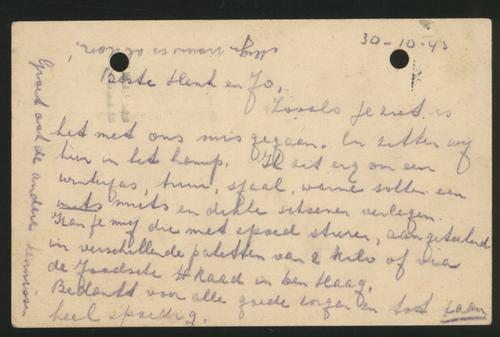 30-10-43
Beste Henk en Jo,
Zooals je ziet is
het met ons mis gegaan. En zitten wij
hier in het kamp. Ik zit erg om een
winterjas, trui, sjaal, warme sokken een
muts en dikke schoenen verlegen.
Kan je mij die met spoed sturen, aangeteekend
in verschillende paketten van 2 kilo of via
de Joodsche Raad in den Haag.
Bedankt voor alle goede zorgen en tot
heel spoedig.
Groet ook de andere kennissen